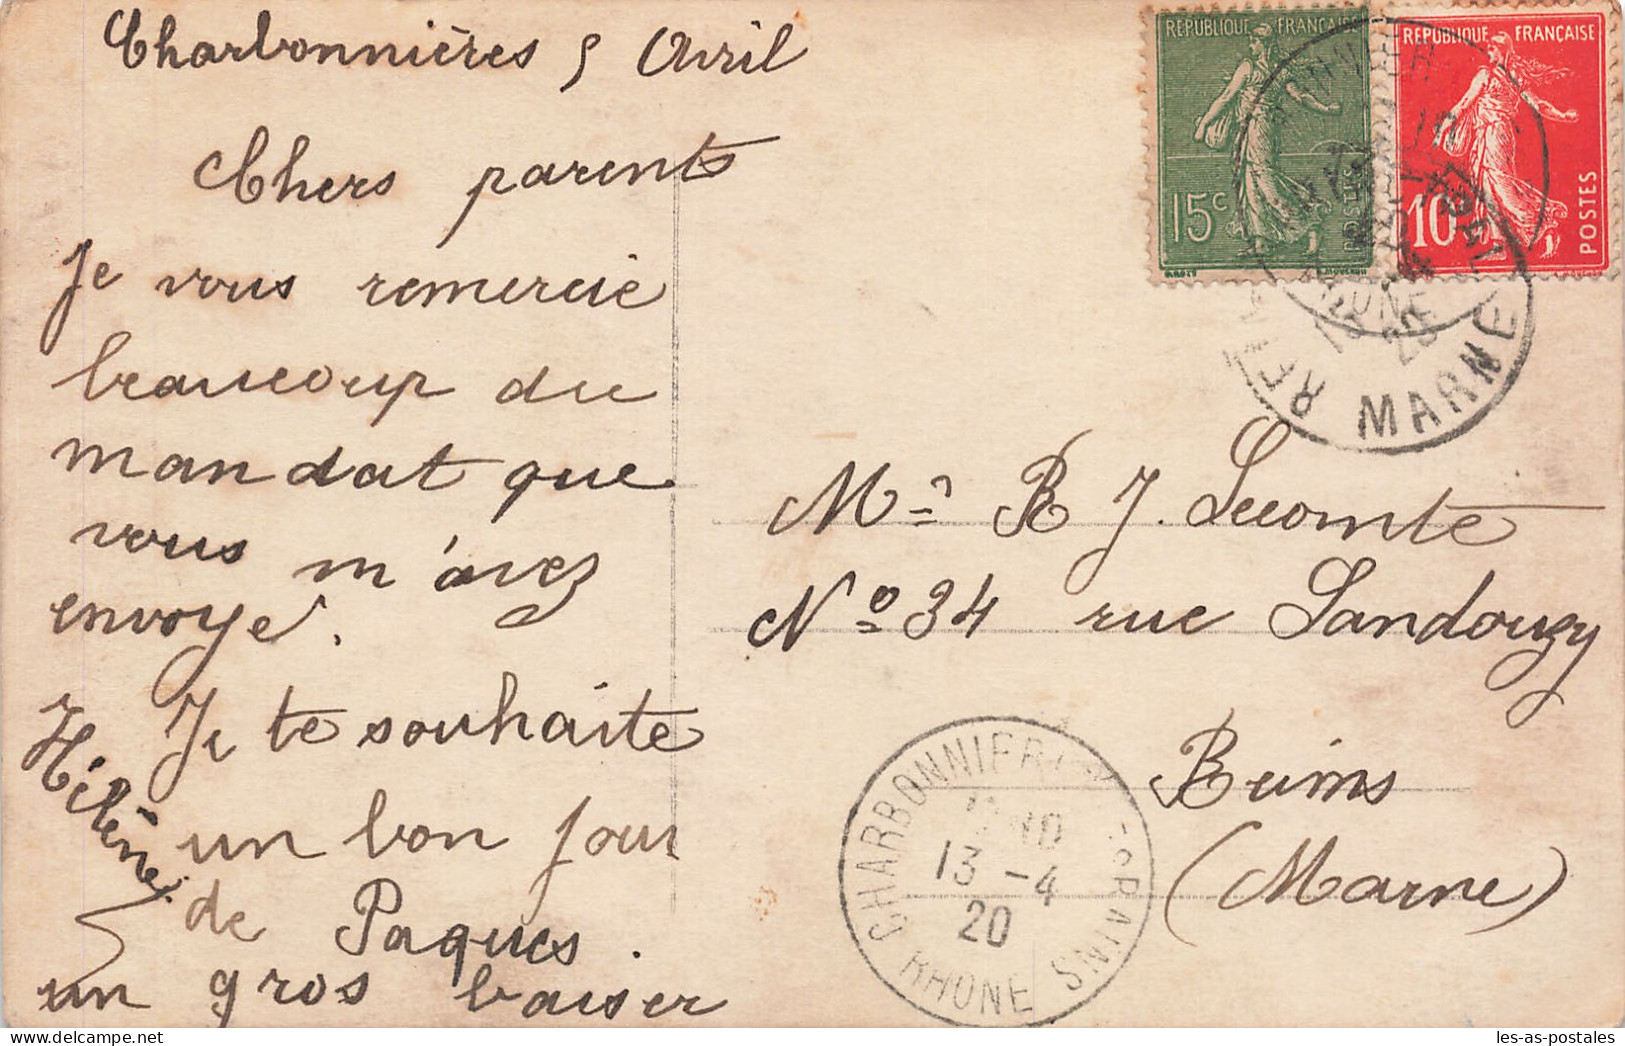 Charbonnières 5 Avril
Chers parents
Je vous remercie
beaucoup du
mandat que
vous m'avez
envoyé.
Je te souhaite
un bon jour
de Paques.
un gros baiser
Hélène
REPUBLIQUE FRANÇAISE
15c
POSTES
REPUBLIQUE FRANÇAISE
10c
POSTES
MARNE
20
Mr R J. Lecomte
No 34 rue Landouzy
Reims
(Marne)
CHARBONNIERES
13 -4
20
RHONE
les-as-postales